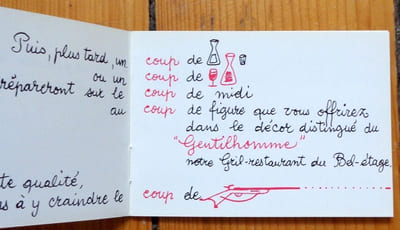 Puis, plus tard, un
ou un
prépareront sur le
au
te qualité,
s à y craindre le
coup de
coup de
coup de midi
coup de figure que vous offrirez
dans le décor distingué du
"Gentilhomme"
notre Gril-restaurant du Bel-étage.
coup de